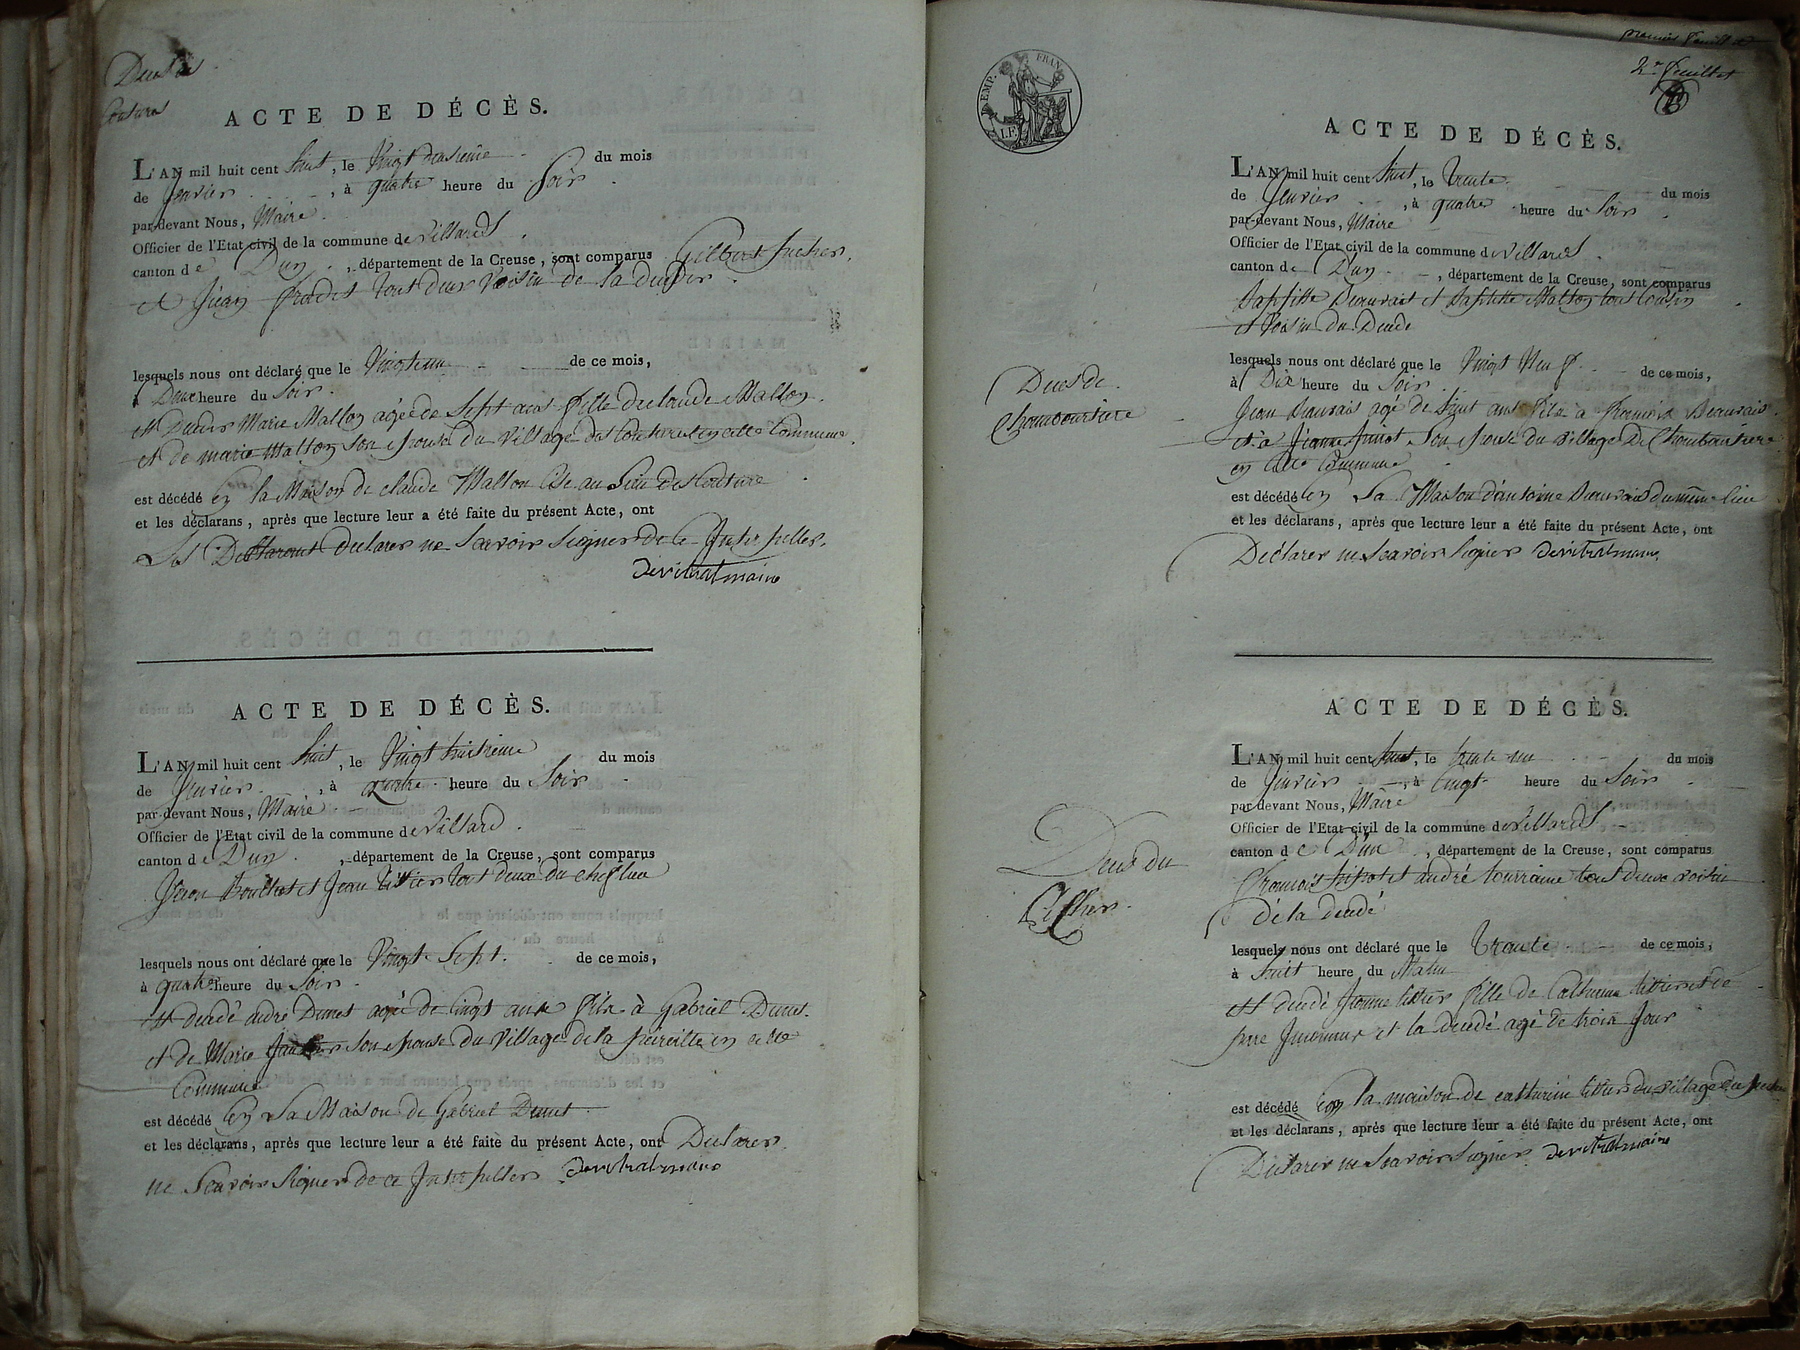 Deces de
Couture
ACTE DE DÉCÈS.
L'AN mil huit cent huit, le vingt deuxieme du mois
de Janvier, à quatre heure du Soir
par-devant Nous, Maire
Officier de l'Etat civil de la commune de villard
canton de Dun, département de la Creuse, sont comparus Gilbert
et Jean Pradet tout deux Voisin de la
lesquels nous ont déclaré que le Vingt eun de ce mois,
à Deux heure du Soir
est Marie Mallon agée de Sept ans fille de claude Mallon
et de marie Mallon son Epouse du village des Couture en cette Commune
est décédé en la Maison de claude Mallon au Lieu des Couture
et les déclarans, après que lecture leur a été faite du présent Acte, ont
declarer ne Scavoir Signer de ce Interpeller
Devitrat maire
ACTE DE DÉCÈS.
L'AN mil huit cent huit, le Vingt huitieme du mois
de Janvier, à quatre heure du Soir
par-devant Nous, Maire
Officier de l'Etat civil de la commune de villard
canton de Dun, département de la Creuse, sont comparus
Jean et Jean tixier tout deux du chef lieu
lesquels nous ont déclaré que le Vingt Sept de ce mois,
à quatre heure du Soir
est decedé andré Dunet agé de Cinqt ans fils à Gabriel Dunet
et de Marie son Epouse du village de la en cette
Commune
est décédé en Sa Maison de Gabriel Dunet
et les déclarans, après que lecture leur a été faite du présent Acte, ont Declarer
ne Scavoir Signer de ce Interpeller Devitrat maire
EMP. FRAN.
2e feuillet
ACTE DE DÉCÈS.
L'AN mil huit cent huit, le trente du mois
de Janvier, à quatre heure du Soir
par-devant Nous, Maire
Officier de l'Etat civil de la commune de villard
canton de Dun, département de la Creuse, sont comparus
Beauvais et Mallon tout Cousin
et Voisin du Decede
Deces de
lesquels nous ont déclaré que le Vingt Neuf de ce mois,
à Dix heure du Soir
Jean Beauvais agé de huit ans fils à François Beauvais
et à Jeanne Son Epouse du village De
en cette Commune
est décédé en La Maison d'antoine Beauvais du même lieu
et les déclarans, après que lecture leur a été faite du présent Acte, ont
Declarer ne Scavoir Signer Devitrat maire
ACTE DE DÉCÈS.
L'AN mil huit cent huit, le trente un du mois
de Janvier, à Cinqt heure du Soir
par-devant Nous, Maire
Officier de l'Etat civil de la commune de villard
canton de Dun, département de la Creuse, sont comparus
François et andré tourraine tout deux voisin
de la decedé
Deces du
lesquels nous ont déclaré que le trante de ce mois,
à huit heure du Matin
est decedé Jeanne tixier fille de Catherine tixier et de
pere Inconnus et la decedé agé de trois Jour
est décédé en la maison de catherine tixier du village du
et les déclarans, après que lecture leur a été faite du présent Acte, ont
Declarer ne Scavoir Signer Devitrat maire